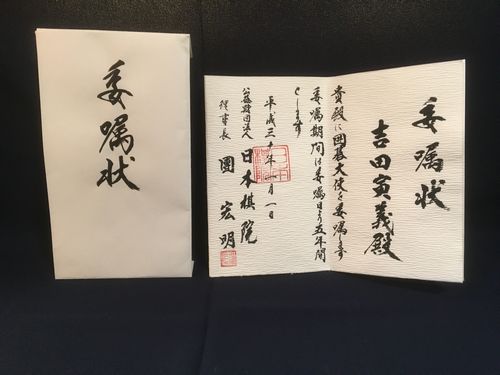 委嘱状
委嘱状
吉田寅義殿
貴殿に囲碁大使を委嘱します
委嘱期間は委嘱日より五年間
とします
平成三十年一月一日
公益財団法人
日本棋院
理事長
團宏明